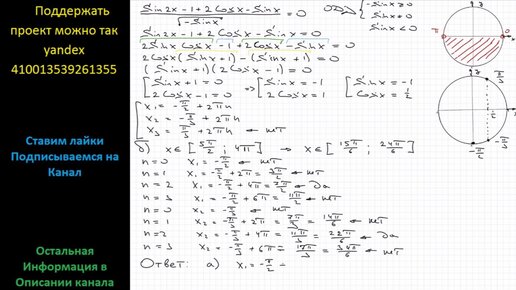 Поддержать
проект можно так
yandex
410013539261355
Ставим лайки
Подписываемся на
Канал
Остальная
Информация в
Описании канала
(Sin2x-1+2Cosx-Sinx)/√(-Sinx) = 0   ОДЗ { -Sinx ≥ 0
Sinx ≠ 0
Sinx < 0
Sin2x-1+2Cosx-Sinx=0
2Sinx Cosx-1+2Cosx-Sinx=0
2Cosx(Sinx+1)-(Sinx+1)=0
(Sinx+1)(2Cosx-1)=0
[ Sinx+1=0 ⇒ [ Sinx=-1 [ Sinx=-1
2Cosx-1=0 2Cosx=1 Cosx=1/2
[ x₁=-π/2+2πn
x₂=-π/3+2πn
x₃=π/3+2πn ← нет
б) x∈[5π/2; 4π] ⇒ x∈[15π/6; 24π/6]
n=0 x₁=-π/2 ← нет
n=1 x₁=-π/2+2π=3π/2 ← нет
n=2 x₁=-π/2+4π=7π/2 ← да
n=3 x₁=-π/2+6π=11π/2 ← нет
n=0 x₂=-π/3 ← нет
n=1 x₂=-π/3+2π= =
n=2 x₂=-π/3+4π=11π/3=22π/6 ← да
n=3 x₂=-π/3+6π=17π/3=34π/6 ← нет
Ответ: а) x₁=-π/2